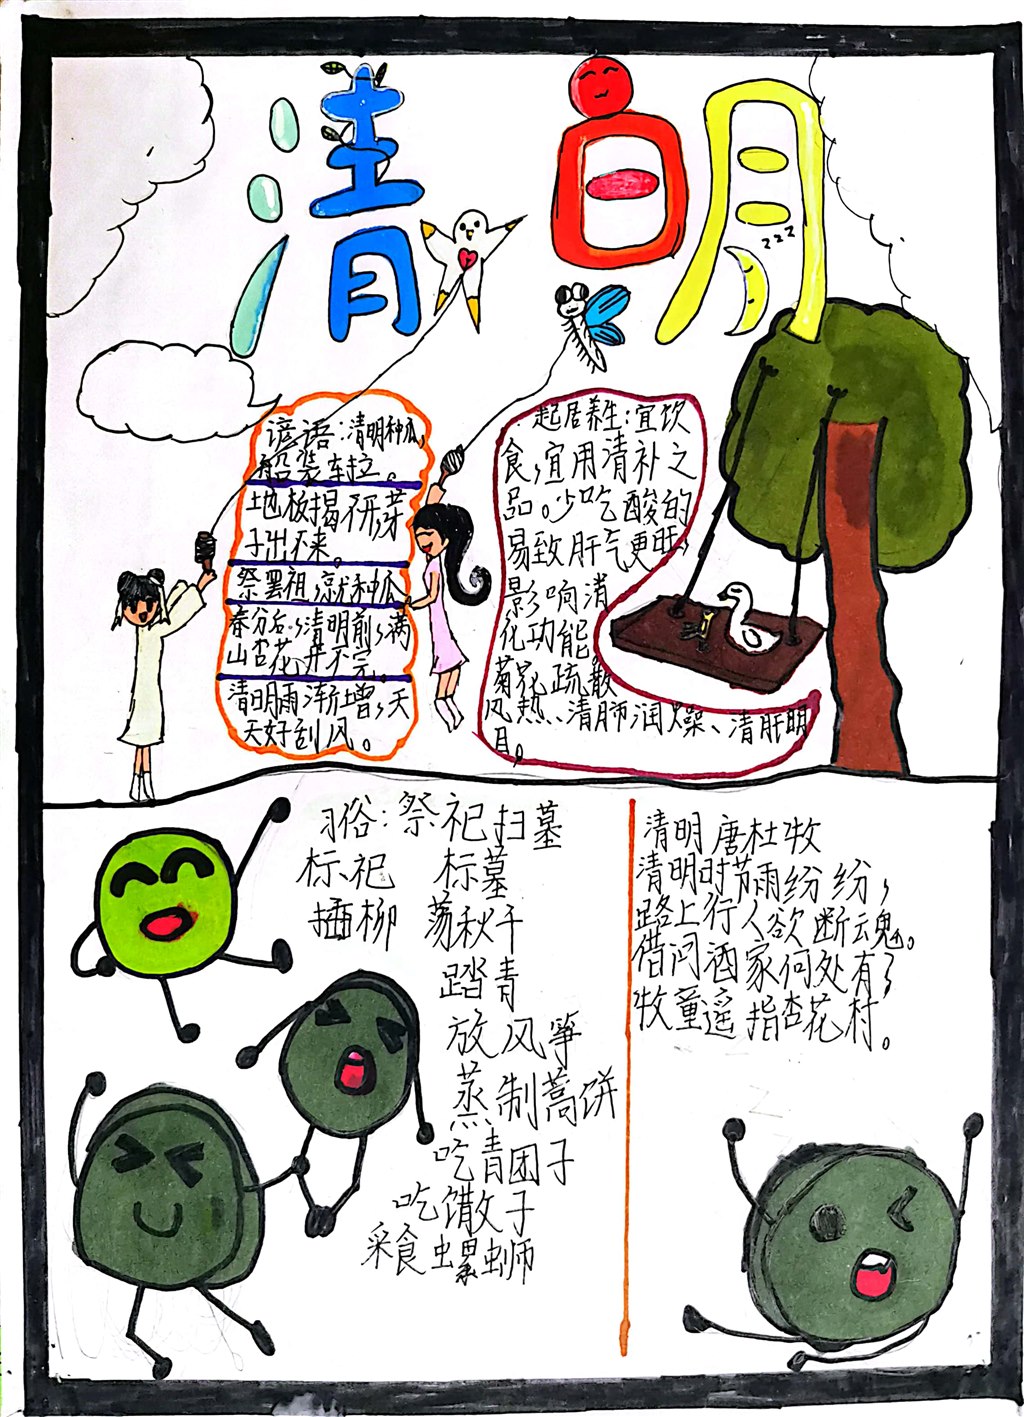 清明
zzz
谚语:清明种瓜,
船装车拉。
地板揭不研,芽
子出不来。
祭罢祖,就种瓜。
春分后,清明前,满
山杏花开不完。
清明雨渐增,天
天好刮风。
起居养生:宜饮
食,宜用清补之
品。少吃酸的
易致肝气更旺,
影响消
化功能
菊花疏散
风热、清肺润燥、清肝明
目。
习俗:祭祀扫墓
标祀 标墓
插柳 荡秋千
踏青
放风筝
蒸制蒿饼
吃青团子
吃馓子
采食螺蛳
清明 唐杜牧
清明时节雨纷纷,
路上行人欲断魂。
借问酒家何处有,
牧童遥指杏花村。